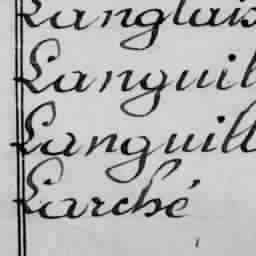 Langlais
Languil
Languill
Larché